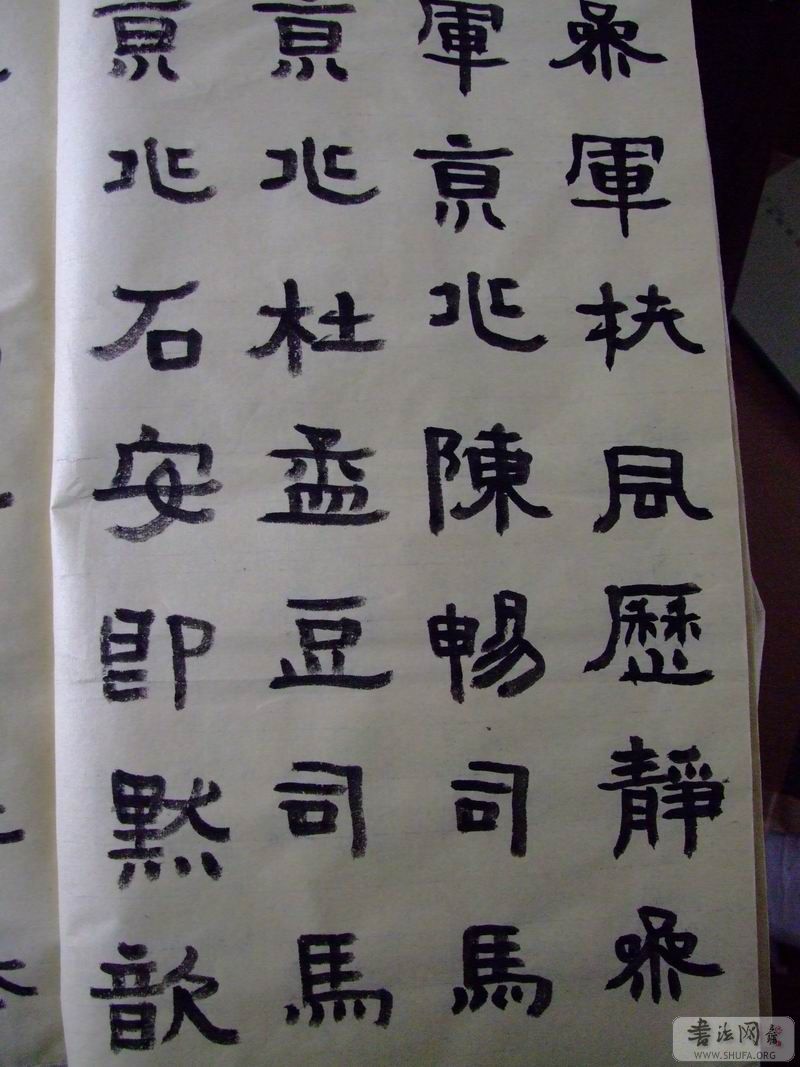 參軍扶風歷靜參
軍京兆陳暢司馬
京兆杜孟豆司馬
京兆石安即默歆
書法网
WWW.SHUFA.ORG